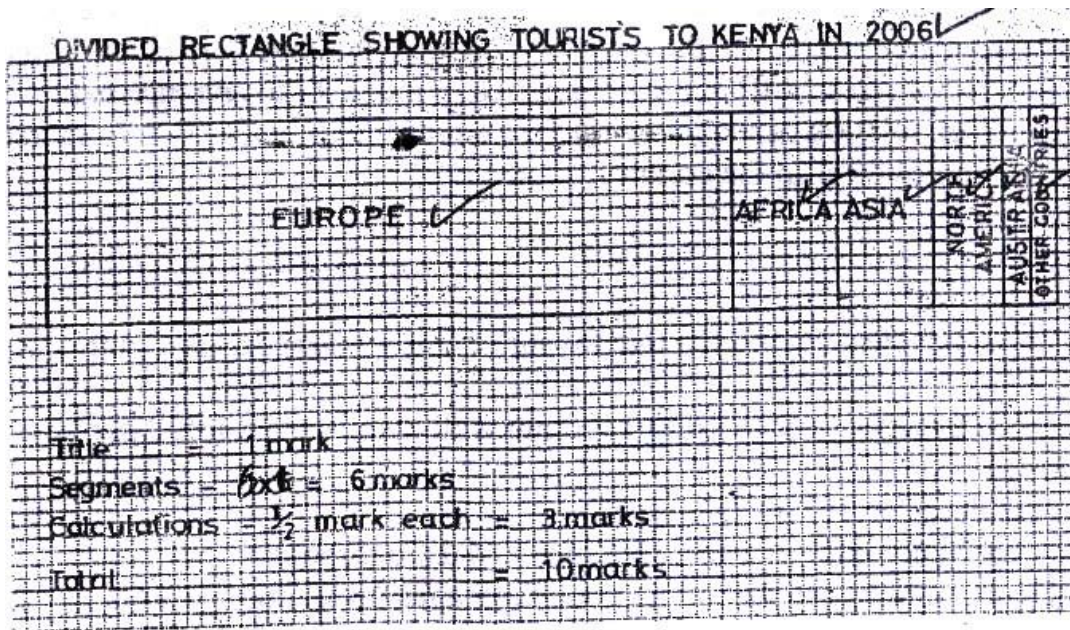 DIVIDED RECTANGLE SHOWING TOURISTS TO KENYA IN 2006
EUROPE
AFRICA
ASIA
NORTH
AMERICA
AUSTRALASIA
OTHER COUNTRIES
Title = 1 mark
Segments = = 6 marks
Calculations = ½ mark each = 3 marks
Total = 10 marks